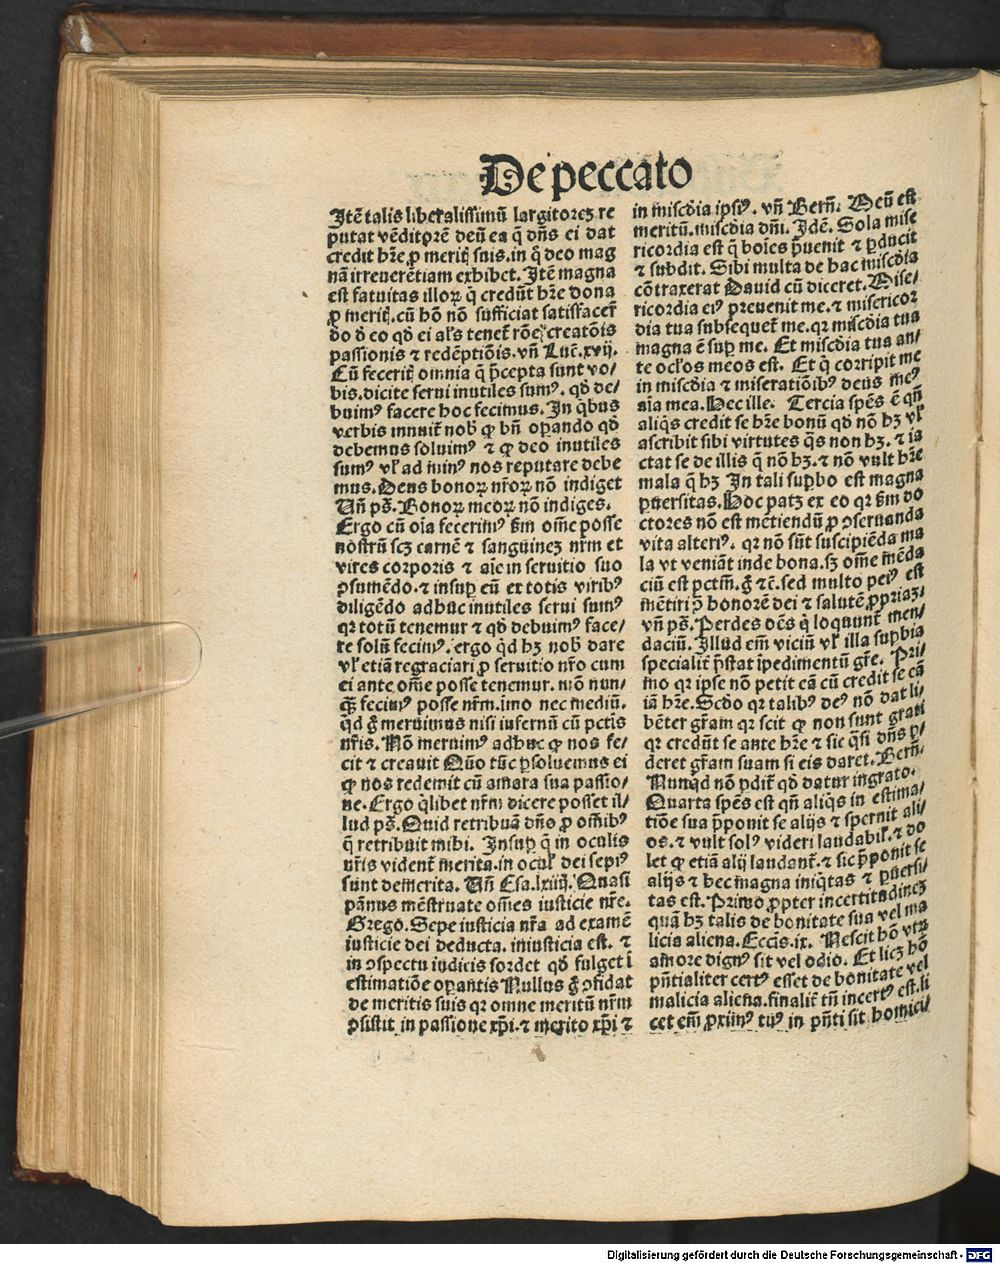 De peccato
Itē talis liberalissimū largitoreȝ re
putat vēditorē deū ea q̄ dn̄s ei dat
credit hr̄e ꝓ meritꝭ suis. in q̄ deo mag
nā irreuerētiam exhibet. Itē magna
est fatuitas illoꝝ q̄ credūt hr̄e dona
ꝓ meritꝭ. cū hō nō sufficiat satisfacer̄
do d̄ eo qd̄ ei al̓s tenet̄ rōe creatōis
passionis ⁊ redēptiōis. vn̄ Luc̄. xvij.
Cū feceritꝭ omnia q̄ p̄cepta sunt vo⸗
bis. dicite serui inutiles sumꝰ. qd̄ de⸗
buimꝰ facere hoc fecimus. In q̄bus
verbis innuit̄ nob̄ ꝙ bn̄ oꝑando qd̄
debemus soluimꝰ ⁊ ꝙ deo inutiles
sumꝰ vl̓ ad minꝰ nos reputare debe
mus. Deus bonoꝝ nr̄oꝝ nō indiget
Vn̄ ps̄. Bonoꝝ meoꝝ nō indiges.
Ergo cū oīa fecerimꝰ ẜm om̄e posse
nostrū scȝ carnē ⁊ sanguineȝ nr̄m et
vires corporis ⁊ aīe in seruitio suo
ꝯsumēdo. ⁊ insuꝑ eū ex totis viribꝰ
diligēdo adhuc inutiles serui sumꝰ
qꝛ totū tenemur ⁊ qd̄ debuimꝰ face⸗
re solū fecimꝰ. ergo qd̄ hȝ nob̄ dare
vl̓ etiā regraciari ꝓ seruitio nr̄o cum
ei ante om̄e posse tenemur. imō nun⸗
q̄ȝ fecimꝰ posse nr̄m. imo nec mediū.
qd̄ g̊ meruimus nisi infernū cū pctīs
nr̄is. Nō meruimꝰ adhuc ꝙ nos fe⸗
cit ⁊ creauit Quō tūc ꝑsoluemus ei
ꝙ nos redemit cū amara sua passio⸗
ne. Ergo q̄libet nr̄m dicere posset il⸗
lud ps̄. Quid retribuā dn̄o ꝓ om̄ibꝰ
q̄ retribuit mihi. Insuꝑ q̄ in oculis
nr̄is vident̄ merita. in ocul̓ dei sepiꝰ
sunt demerita. Vn̄ Esa. lxiiij. Quasi
pānus mēstruate om̄es iusticie nr̄e.
Grego. Sepe iusticia nr̄a ad examē
iusticie dei deducta. iniusticia est. ⁊
in ꝯspectu iudicis sordet qd̄ fulget ī
estimatiōe oꝑantis Nullus g̊ ꝯfidat
de meritis suis qꝛ omne meritū nr̄m
ꝯsistit in passione xp̄i. ⁊ merito xp̄i ⁊
in miscd̄ia ipsiꝰ. vn̄ Bern̄. Meū est
meritū. miscd̄ia dn̄i. Idē. Sola mise
ricordia est q̄ hoīes p̄uenit ⁊ ꝑducit
⁊ subdit. Sibi multa de hac miscd̄ia
cōtraxerat Dauid cū diceret. Mise⸗
ricordia eiꝰ preuenit me. ⁊ misericor
dia tua subsequet̄ me. qꝛ miscd̄ia tua
magna ē suꝑ me. Et miscd̄ia tua an⸗
te ocl̓os meos est. Et q̄ corripit me
in miscd̄ia ⁊ miseratiōibꝰ deus meꝰ
aīa mea. Hec ille. Tercia sp̄es ē qn̄
aliq̄s credit se hr̄e bonū qd̄ nō hȝ vl̓
ascribit sibi virtutes q̄s non hȝ. ⁊ ia
ctat se de illis q̄ nō hȝ. ⁊ nō vult hr̄e
mala q̄ hȝ In tali suꝑbo est magna
ꝑuersitas. Hoc patȝ ex eo qꝛ ẜm do
ctores nō est mētiendū ꝓ ꝯseruanda
vita alteriꝰ. qꝛ nō sūt suscipiēda ma
la vt veniāt inde bona. sȝ om̄e mēda
ciū est pctm̄. g̊ ⁊c̄. sed multo peiꝰ est
mētiri ꝓ honorē dei ⁊ salutē ꝓpriaȝ⸗
vn̄ ps̄. Perdes oēs q̄ loquunt̄ men⸗
daciū. Illud em̄ viciū vl̓ illa suꝑbia
specialit̄ p̄stat īpedimentū gr̄e. Pri⸗
mo qꝛ ipse nō petit eā cū credit se eā
iā hr̄e. Scd̄o qꝛ talibꝰ deꝰ nō dat li⸗
bēter gr̄am qꝛ scit ꝙ non sunt grati
qꝛ credūt se ante hr̄e ⁊ sic q̄si dn̄s ꝑ⸗
deret gr̄am suam si eis daret. Bern̄.
Nunq̄d nō ꝑdit̄ qd̄ datur ingrato.
Quarta sp̄es est qn̄ aliq̄s in estima⸗
tiōe sua p̄ponit se alijs ⁊ spernit ali⸗
os. ⁊ vult solꝰ videri laudabil̓. ⁊ do
let ꝙ etiā alij laudant̄. ⁊ sic p̄ponit se
alijs ⁊ hec magna iniq̄tas ⁊ ꝑuersi⸗
tas est. Primo ꝓpter incertitudineȝ
quā hȝ talis de bonitate sua vel ma
licia aliena. Eccūs. ix. Nescit hō vtꝝ
amore dignꝰ sit vel odio. Et licȝ hō
pn̄tialiter certꝰ esset de bonitate vel
malicia aliena. finalit̄ tn̄ incertꝰ est. li
cet em̄ ꝓximꝰ tuꝰ in pn̄ti sit homici⸗
Digitalisierung gefördert durch die Deutsche Forschungsgemeinschaft - DFG